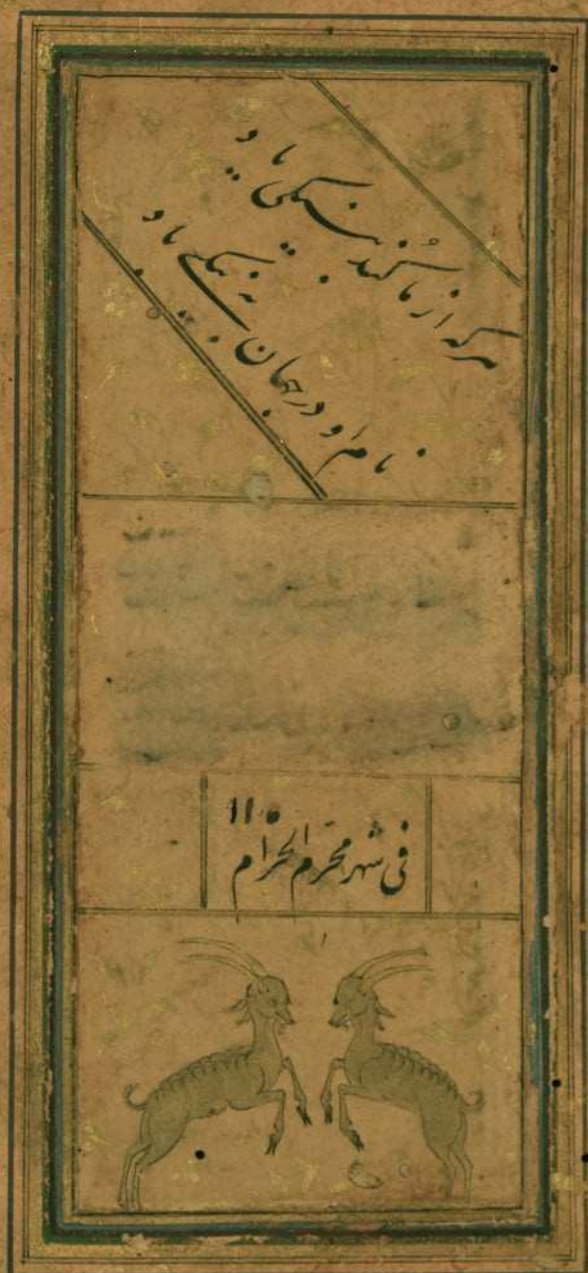 هر که از ما کند به نیکی یاد
نام او در جهان به نیکی باد
في شهر محرم الحرام ١١٠